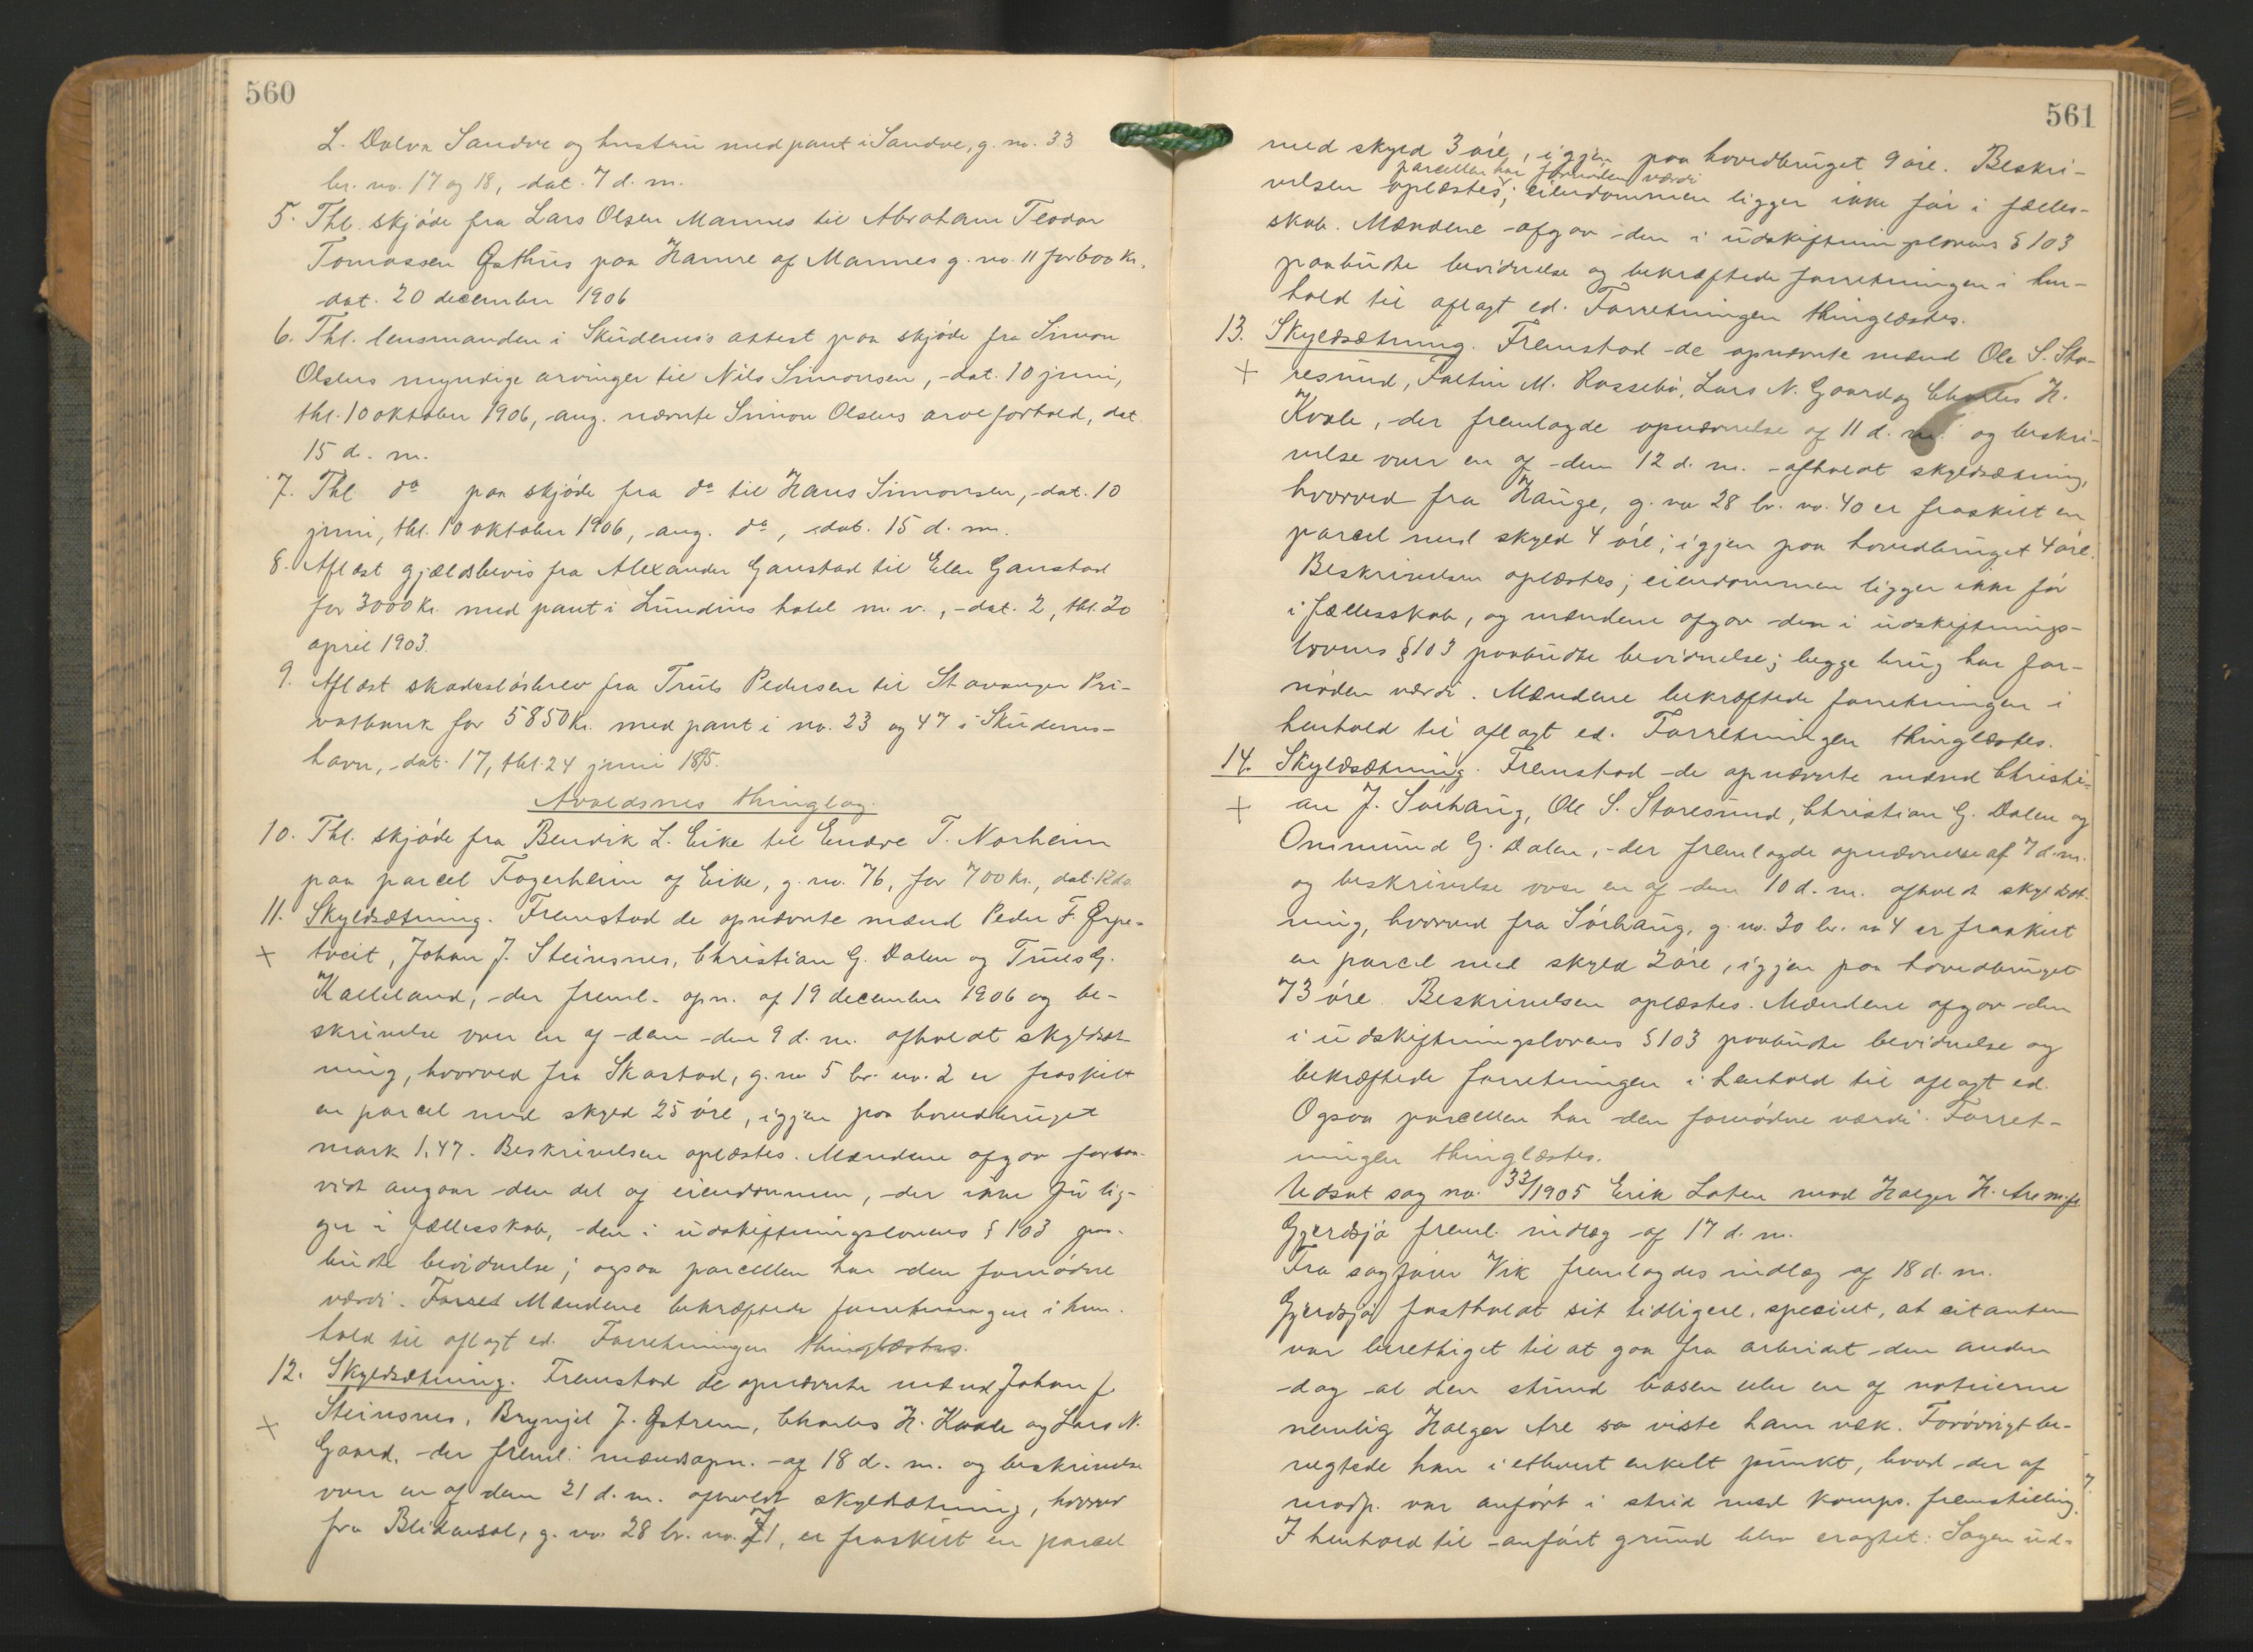 560
L. Dalva Sandve og hustru med pant i Sandve, g. no. 33
br. no. 17 og 18, dat. 7 d. m.
5. Thl. skjøde fra Lars Olsen Mannes til Abraham Teodor
Tomassen Østhus paa Hamre af Mannes g. no. 11 for 600 kr.,
dat. 20 december 1906
6. Thl. lensmanden i Skudenes's attest paa skjøde fra Simon
Olsens myndige arvinger til Nils Simonsen, dat. 10 juni,
thl. 10 oktober 1906, ang. nævnte Simon Olsens arveforhold, dat.
15 d. m.
7. Thl do paa skjøde fra do til Hans Simonsen, dat. 10
juni, thl. 10 oktober 1906, ang. do, dat. 15 d. m.
8. Aflæst gjældsbevis fra Alexander Ganstad til Elen Ganstad
for 3000 kr. med pant i Lundins hotel m. v., dat. 2, thl. 20
april 1903.
9. Aflæst skadesløsbrev fra Truls Pedersen til Stavanger Pri-
vatbank for 5850 kr. med pant i no. 23 og 47 i Skudenes-
havn, dat. 17, thl. 24 juni
Avaldsnes thinglag.
10. Thl. skjøde fra Bendik L. Eike til Endre T. Norheim
paa parcel Fagerheim af Eike, g. no. 76, for 700 kr., dat.
11. Skyldsætning. Fremstod de opnævnte mænd Peder F. Ørpe-
+ tveit, Johan J. Steinsnes, Christian G. Dalen og Truls G.
Kalleland, der freml. opn. af 19 december 1906 og be-
skrivelse over en af dem den 9 d. m. afholdt skyldsæt-
ning, hvorved fra Skastad, g. no 5 br. no. 2 er fraskilt
en parcel med skyld 25 øre, igjen paa hovedbruget
mark 1.47. Beskrivelsen oplæstes. Mændene afgav forsaa-
vidt angaar den del af eiendommen, der ikke før lig-
ger i fællesskab, den i udskiftningslovens § 103 paa-
budte bevidnelse; ogsaa parcellen har den fornødne
værdi. Forret Mændene bekræftede forretningen i hen-
hold til aflagt ed. Forretningen thinglæstes.
12. Skyldsætning. Fremstod de opnævnte mænd Johan J.
+ Steinsnes, Brynjel J. Østrem, Charles H. Kvale og Lars N.
Gaard, der freml. mændsopn. af 18 d. m. og beskrivelse
over en af dem 21 d. m. afholdt skyldsætning, hvorved
fra Blikansol, g. no. 28 br. no. 71, er fraskilt en parcel
561
med skyld 3 øre, igjen paa hovedbruget 9 øre. Beskri-
parcellen har fornøden værdi
velsen oplæstes; eiendommen ligger ikke før i fælles-
skab. Mændene afgav den i udskiftningslovens § 103
paabudte bevidnelse og bekræftede forretningen i hen-
hold til aflagt ed. Forretningen thinglæstes.
13. Skyldsætning. Fremstod de opnævnte mænd Ole S. Sto-
+ resund, Faltin M. Rossebø, Lars N. Gaard og Charles H.
Kvale, der fremlagde opnævnelse af 11 d. m. og beskri-
velse over en af dem 12 d. m. afholdt skyldsætning,
hvorved fra Hauge, g. no 28 br. no. 40 er fraskilt en
parcel med skyld 4 øre; igjen paa hovedbruget 4 øre.
Beskrivelsen oplæstes; eiendommen ligger ikke før
i fællesskab, og mændene afgav den i udskiftnings-
lovens § 103 paabudte bevidnelse; begge brug har for-
nøden værdi. Mændene bekræftede forretningen i
henhold til aflagt ed. Forretningen thinglæstes.
14. Skyldsætning. Fremstod de opnævnte mænd Christi-
+ an J. Sørhaug, Ole S. Storesund, Christian G. Dalen og
Ommund G. Dalen, der fremlagde opnævnelse af 7 d. m.
og beskrivelse over en af dem 10 d. m. afholdt skyldsæt-
ning, hvorved fra Sørhaug, g. no. 30 br. no 4 er fraskilt
en parcel med skyld 2 øre, igjen paa hovedbruget
73 øre. Beskrivelsen oplæstes. Mændene afgav den
i udskiftningslovens § 103 paabudte bevidnelse og
bekræftede forretningen i henhold til aflagt ed.
Ogsaa parcellen har den fornødne værdi. Forret-
ningen thinglæstes.
Udsat sag no. 33/1905 Erik Loten mod Holger H. Are m. fl
Gjerdsjø freml. indlæg af 17 d. m.
Fra sagfører Vik fremlagdes indlæg af 18 d. m.
Gjerdsjø fastholdt sit tidligere, specielt, at citanten
var berettiget til at gaa fra arbeidet den anden
dag al den stund basen eller en af noteierne
nemlig Holger Are so viste ham væk. Forøvrigt be-
negtede han i ethvert enkelt punkt, hvad der af
modp. var anført i strid med komps. fremstilling.
I henhold til anført grund blev eragtet: Sagen ud-